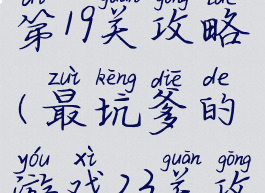 第19关攻略
zuì kēng diē de
(最坑爹的
yóu xì guān gōng
游戏23关攻